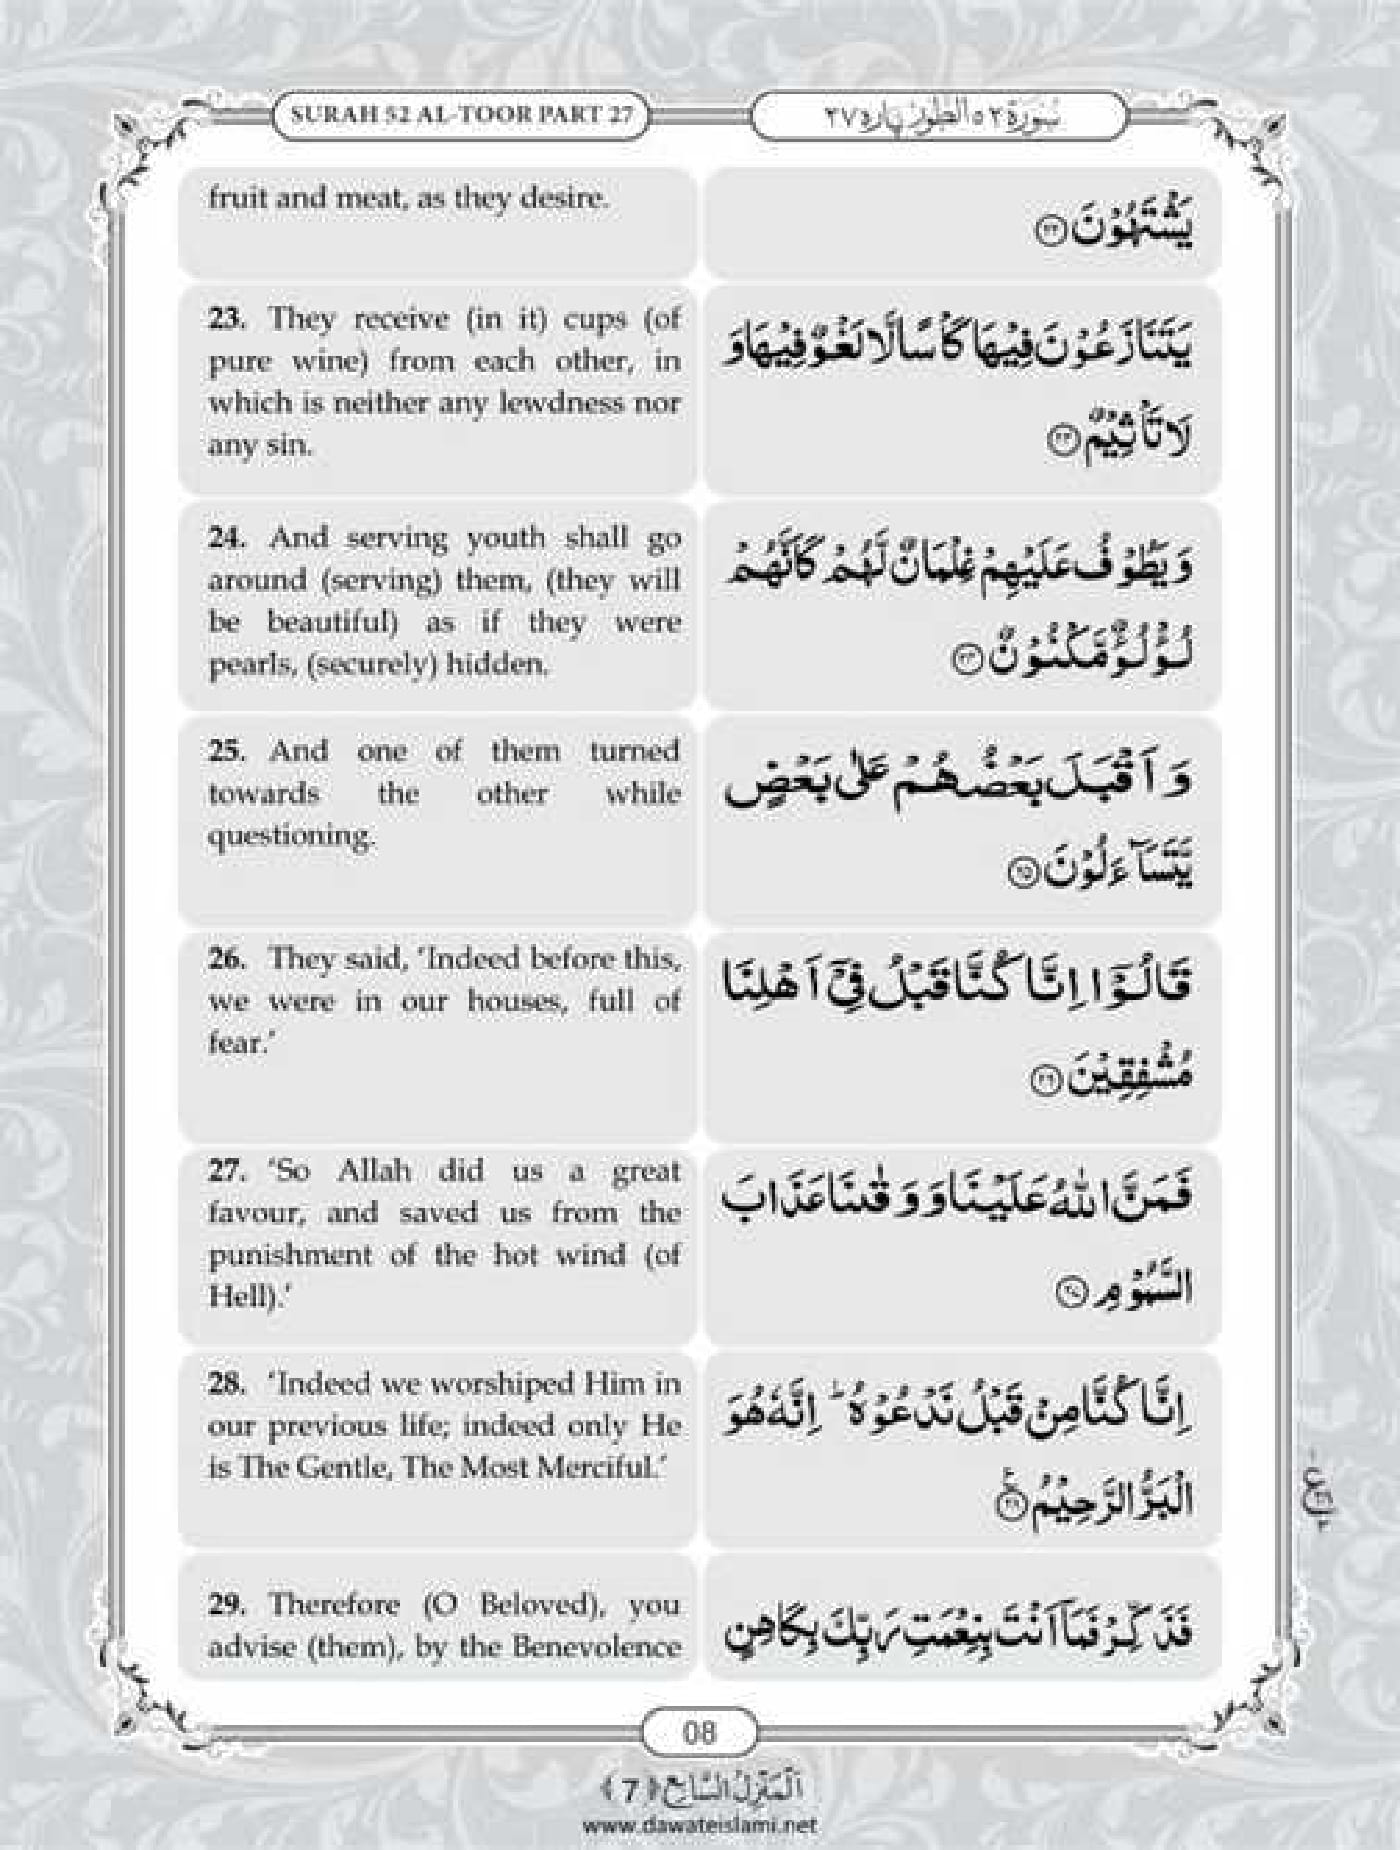 SURAH 52 AL-TOOR PART 27
سُوْرَةُ ٥٢ الطُّوْرِ پاره ٢٧
fruit and meat, as they desire.
يَشْتَهُوْنَ ﴿٢٢﴾
23. They receive (in it) cups (of
pure wine) from each other, in
which is neither any lewdness nor
any sin.
يَتَنَازَعُوْنَ فِيْهَا كَاْسًا لَّا لَغْوٌ فِيْهَا وَ
لَا تَاْثِيْمٌ ﴿٢٣﴾
24. And serving youth shall go
around (serving) them, (they will
be beautiful) as if they were
pearls, (securely) hidden.
وَ يَطُوْفُ عَلَيْهِمْ غِلْمَانٌ لَّهُمْ كَاَنَّهُمْ
لُؤْلُؤٌ مَّكْنُوْنٌ ﴿٢٤﴾
25. And one of them turned
towards the other while
questioning.
وَ اَقْبَلَ بَعْضُهُمْ عَلٰى بَعْضٍ
يَّتَسَآءَلُوْنَ ﴿٢٥﴾
26. They said, ‘Indeed before this,
we were in our houses, full of
fear.’
قَالُوْۤا اِنَّا كُنَّا قَبْلُ فِيْۤ اَهْلِنَا
مُشْفِقِيْنَ ﴿٢٦﴾
27. ‘So Allah did us a great
favour, and saved us from the
punishment of the hot wind (of
Hell).’
فَمَنَّ اللّٰهُ عَلَيْنَا وَ وَقٰىنَا عَذَابَ
السَّمُوْمِ ﴿٢٧﴾
28. ‘Indeed we worshiped Him in
our previous life; indeed only He
is The Gentle, The Most Merciful.’
اِنَّا كُنَّا مِنْ قَبْلُ نَدْعُوْهُ ؕ اِنَّهٗ هُوَ
الْبَرُّ الرَّحِيْمُ ﴿٢٨﴾
29. Therefore (O Beloved), you
advise (them), by the Benevolence
فَذَكِّرْ فَمَاۤ اَنْتَ بِنِعْمَتِ رَبِّكَ بِكَاهِنٍ
08
اَلْمَنْزِلُ السَّابِعُ ﴿7﴾
www.dawateislami.net